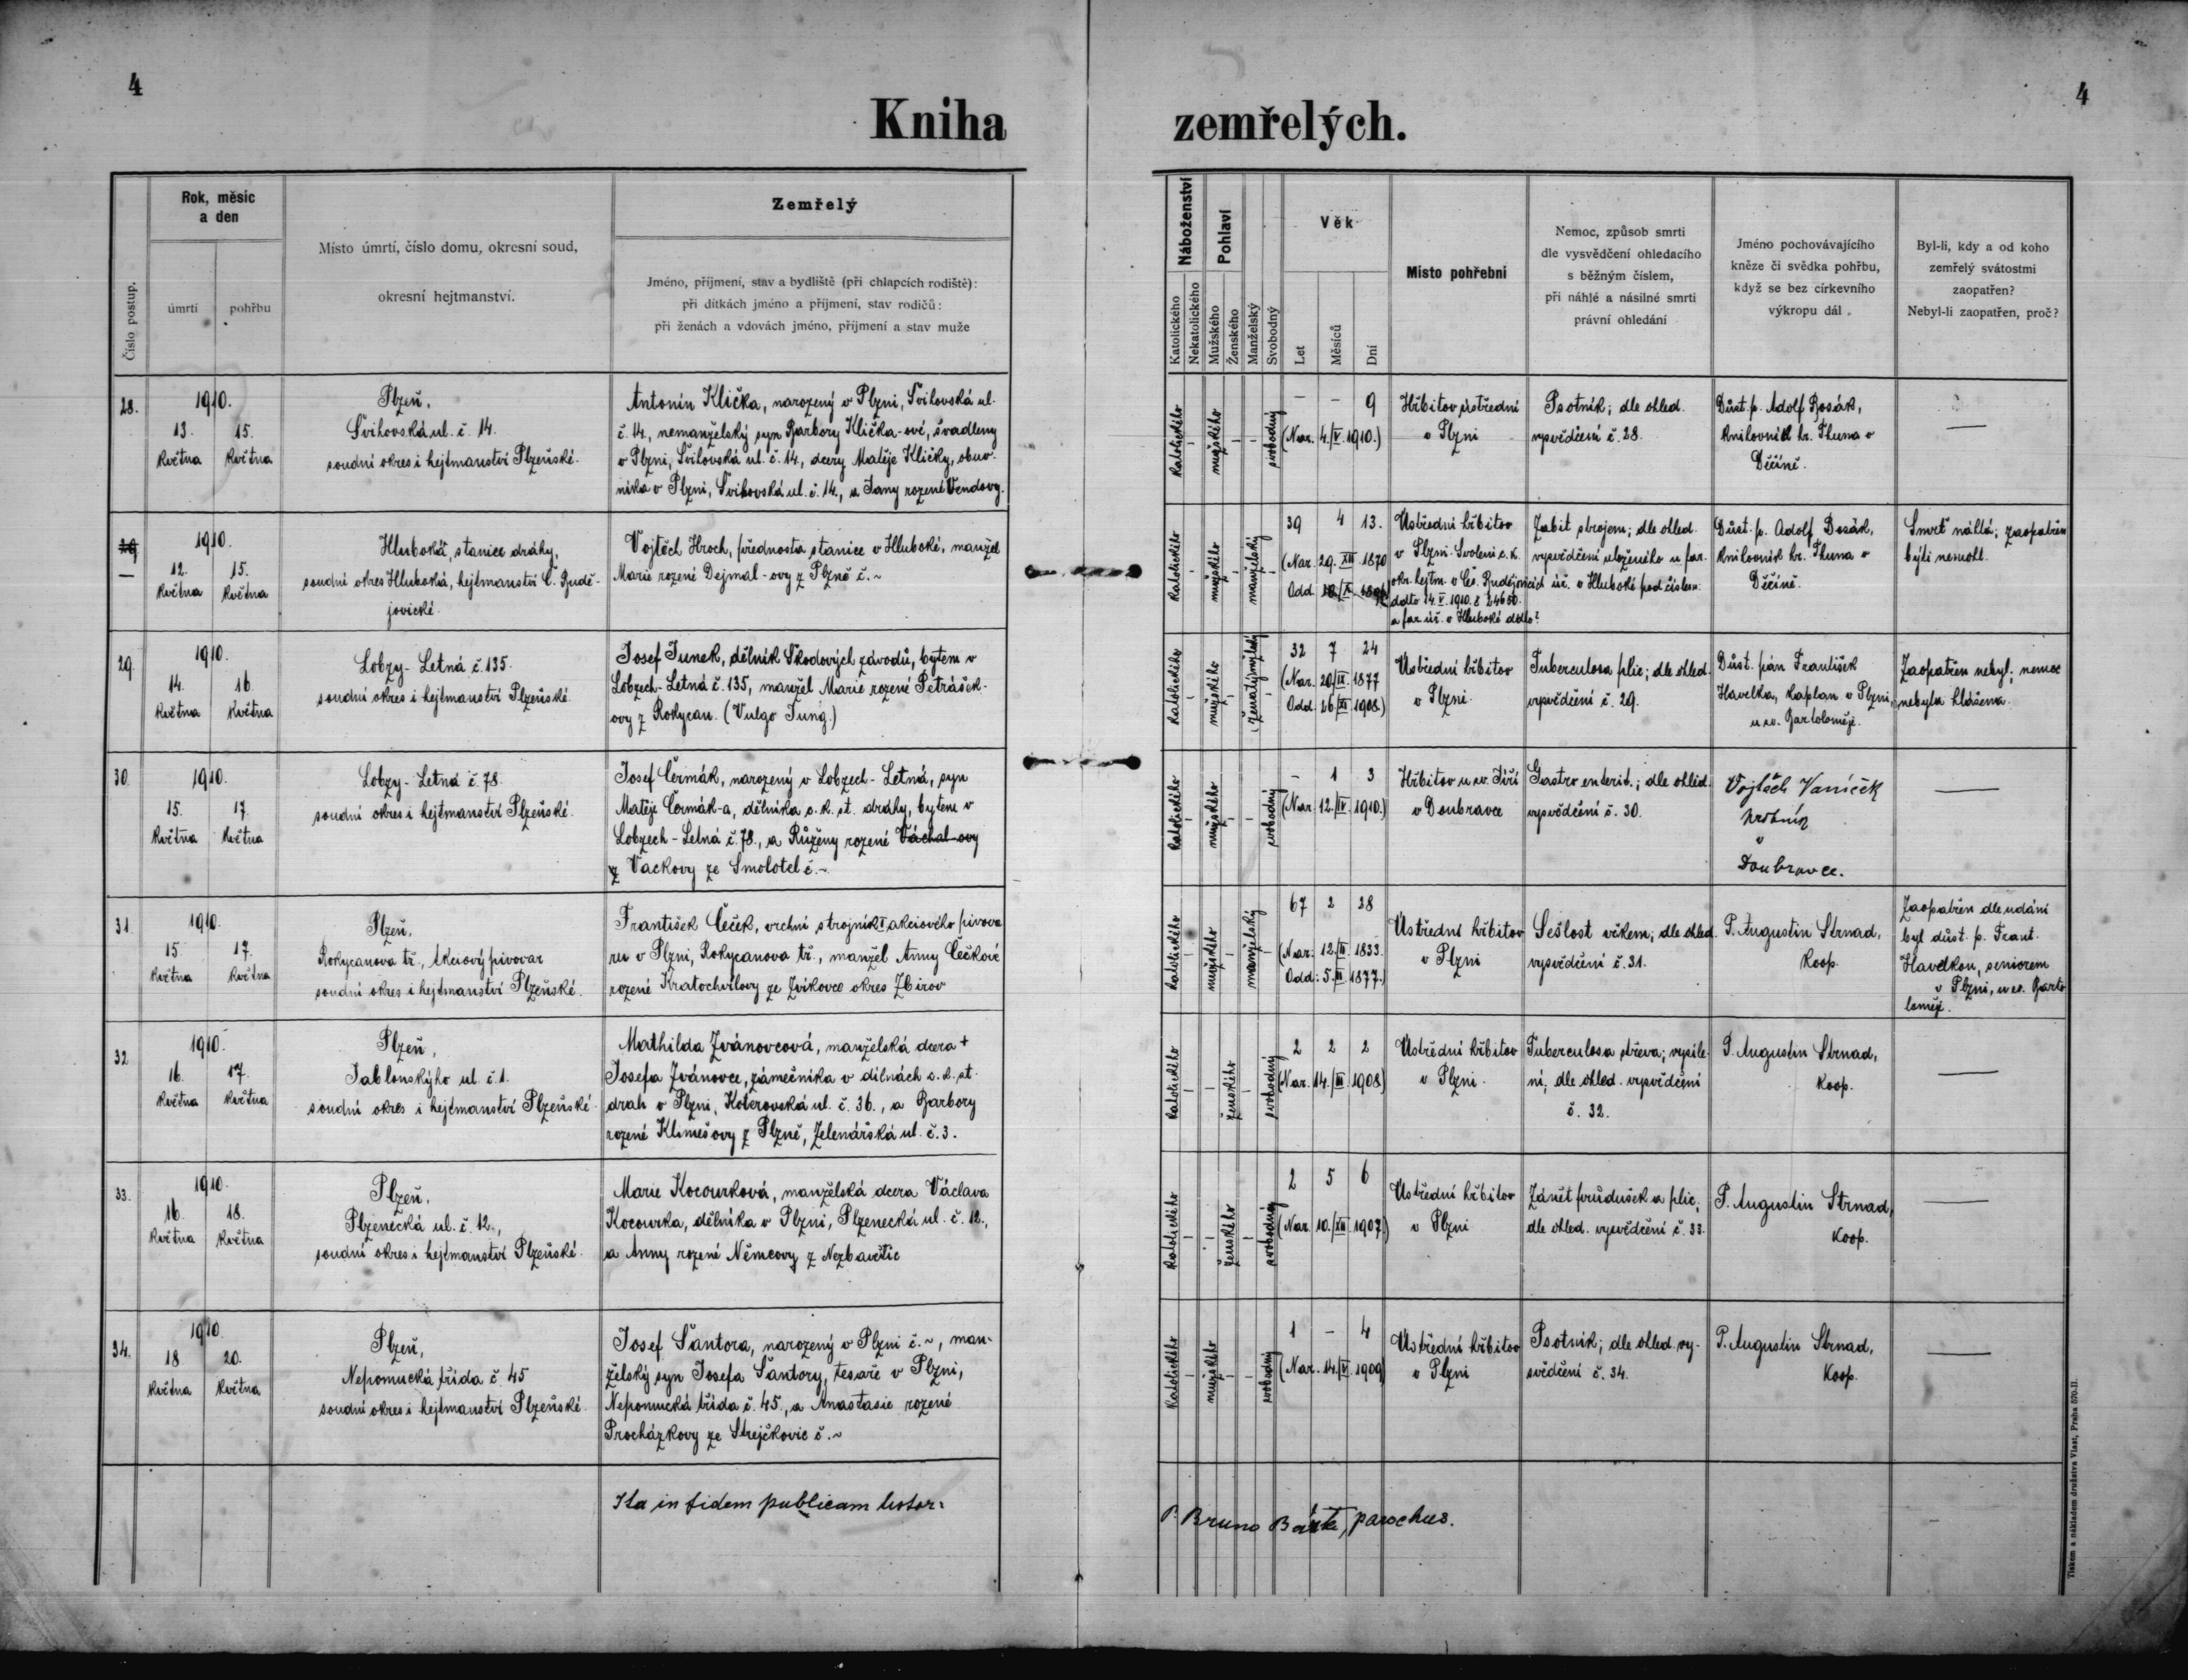 4
4
Kniha zemřelých.
Číslo postup.
Rok, měsíc
a den
úmrtí
pohřbu
Místo úmrtí, číslo domu, okresní soud,
okresní hejtmanství.
Zemřelý
Jméno, příjmení, stav a bydliště (při chlapcích rodiště):
při dítkách jméno a příjmení, stav rodičů:
při ženách a vdovách jméno, příjmení a stav muže
Náboženství
Katolického
Nekatolického
Pohlaví
Mužského
Ženského
Manželský
Svobodný
Věk
Let
Měsíců
Dní
Místo pohřební
Nemoc, způsob smrti
dle vysvědčení ohledacího
s běžným číslem,
při náhlé a násilné smrti
právní ohledání
Jméno pochovávajícího
kněze či svědka pohřbu,
když se bez církevního
výkropu dál.
Byl-li, kdy a od koho
zemřelý svátostmi
zaopatřen?
Nebyl-li zaopatřen, proč?
28.
1910.
13. 15.
května května
Plzeň,
Švihovská ul. č. 14.
soudní okres i hejtmanství Plzeňské.
Antonín Klička, narozený v Plzni, Švihovská ul.
č. 14, nemanželský syn Barbory Klička-ové, švadleny
v Plzni, Švihovská ul. č. 14, dcery Matěje Kličky, obuv-
níka v Plzni, Švihovská ul. č. 14., a Jany rozené Vendovy.
katolického
mužského
svobodný
– – 9
(Nar. 4./V. 1910.)
Hřbitov ústřední
v Plzni
Psotník; dle ohled.
vysvědčení č. 28.
Důst. p. Adolf Bosák,
knihovník hr. Thuna v
Děčíně.
—
29
—
1910.
12. 15.
května května
Hluboká, stanice dráhy,
soudní okres Hluboká, hejtmanství Č. Budě-
jovické.
Vojtěch Hroch, přednosta stanice v Hluboké, manžel
Marie rozené Dejmal-ovy z Plzně č. ~
katolického
mužského
manželský
39 4 13.
(Nar. 29. XII 1870
Odd.
Ústřední hřbitov
v Plzni. Svolení c. k.
okr. hejtm. v Čes. Budějovicích
ddto 14. V. 1910. č 24650.
a far. úř. v Hluboké ddto?
Zabit strojem; dle ohled.
vysvědčení uloženého u far.
úř. v Hluboké pod číslem.
Důst. p. Adolf Bosák,
knihovník hr. Thuna v
Děčíně.
Smrt náhlá; zaopatřen
býti nemohl.
29.
1910.
14. 16.
května května
Lobzy - Letná č. 135.
soudní okres i hejtmanství Plzeňské.
Josef Junek, dělník Škodových závodů, bytem v
Lobzech-Letná č. 135, manžel Marie rozené Petrášek-
ovy z Rokycan. (Vulgo Jung.)
katolického
mužského
32 7 24
(Nar. 20/IX. 1877
Odd. 26./XI. 1908.)
Ústřední hřbitov
v Plzni.
Tuberculosa plic; dle ohled.
vysvědčení č. 29.
Důst. pán František
Havelka, kaplan v Plzni,
u sv. Bartoloměje.
Zaopatřen nebyl; nemoc
nebyla hlášena.
30.
1910.
15. 17.
května května
Lobzy - Letná č. 78.
soudní okres i hejtmanství Plzeňské.
Josef Čermák, narozený v Lobzech - Letná, syn
Matěje Čermák-a, dělníka c. k. st. dráhy, bytem v
Lobzech - Letná č. 78., a Růženy rozené Váchal-ovy
z Vackovy ze Smolotel č. ~
katolického
mužského
svobodný
– 1 3
(Nar. 12./IV. 1910.)
Hřbitov u sv. Jiří
v Doubravce
Gastro enterit.; dle ohled.
vysvědčení č. 30.
Vojtěch Vaníček
hrobník
v
Doubravce.
—
31.
1910.
15. 17.
května května
Plzeň,
Rokycanova tř., Akciový pivovar
soudní okres i hejtmanství Plzeňské.
František Čeček, vrchní strojník I. akciového pivova
ru v Plzni, Rokycanova tř., manžel Anny Čečkové
rozené Kratochvílovy ze Zvíkovce okres Zbirov
katolického
mužského
manželský
67 2 28
(Nar. 12./II. 1833.
Odd: 5./III. 1877.)
Ústřední hřbitov
v Plzni
Sešlost věkem; dle ohled.
vysvědčení č. 31.
P. Augustin Strnad,
koop.
Zaopatřen dle udání
byl důst. p. Frant.
Havelkou, seniorem
v Plzni, u sv. Barto
loměje.
32
1910.
16. 17.
května května
Plzeň,
Jablonského ul. č. 1.
soudní okres i hejtmanství Plzeňské.
Mathilda Zvánovcová, manželská dcera +
Josefa Zvánovce, zámečníka v dílnách c. k. st.
drah v Plzni, Koterovská ul. č. 36., a Barbory
rozené Klimešovy z Plzně, Zelenářská ul. č. 3.
katolického
ženského
svobodný
2 2 2
(Nar. 14./III. 1908)
Ústřední hřbitov
v Plzni.
Tuberculosa střeva; vysíle-
ní; dle ohled. vysvědčení
č. 32.
P. Augustin Strnad,
koop.
—
33.
1910.
16. 18.
května května
Plzeň,
Plzenecká ul. č. 12.,
soudní okres i hejtmanství Plzeňské.
Marie Kocourková, manželská dcera Václava
Kocourka, dělníka v Plzni, Plzenecká ul. č. 12.,
a Anny rozené Němcovy z Nezbavětic
katolického
ženského
svobodný
2 5 6
(Nar. 10./XII. 1907.)
Ústřední hřbitov
v Plzni
Zánět průdušek a plic;
dle ohled. vysvědčení č. 33.
P. Augustin Strnad,
koop.
—
34.
1910.
18 20.
května května
Plzeň,
Nepomucká třída č. 45
soudní okres i hejtmanství Plzeňské.
Josef Šantora, narozený v Plzni č. ~, man-
želský syn Josefa Šantory, tesaře v Plzni,
Nepomucká třída č. 45., a Anastasie rozené
Procházkovy ze Strejčkovic č. ~
katolického
mužského
svobodný
1 – 4
(Nar. 14./V. 1909)
Ústřední hřbitov
v Plzni
Psotník; dle ohled. vy-
svědčení č. 34.
P. Augustin Strnad,
koop.
—
Ita in fidem publicam testor:
P. Bruno Bárta, parochus.
Tiskem a nákladem družstva Vlast, Praha 570-II.